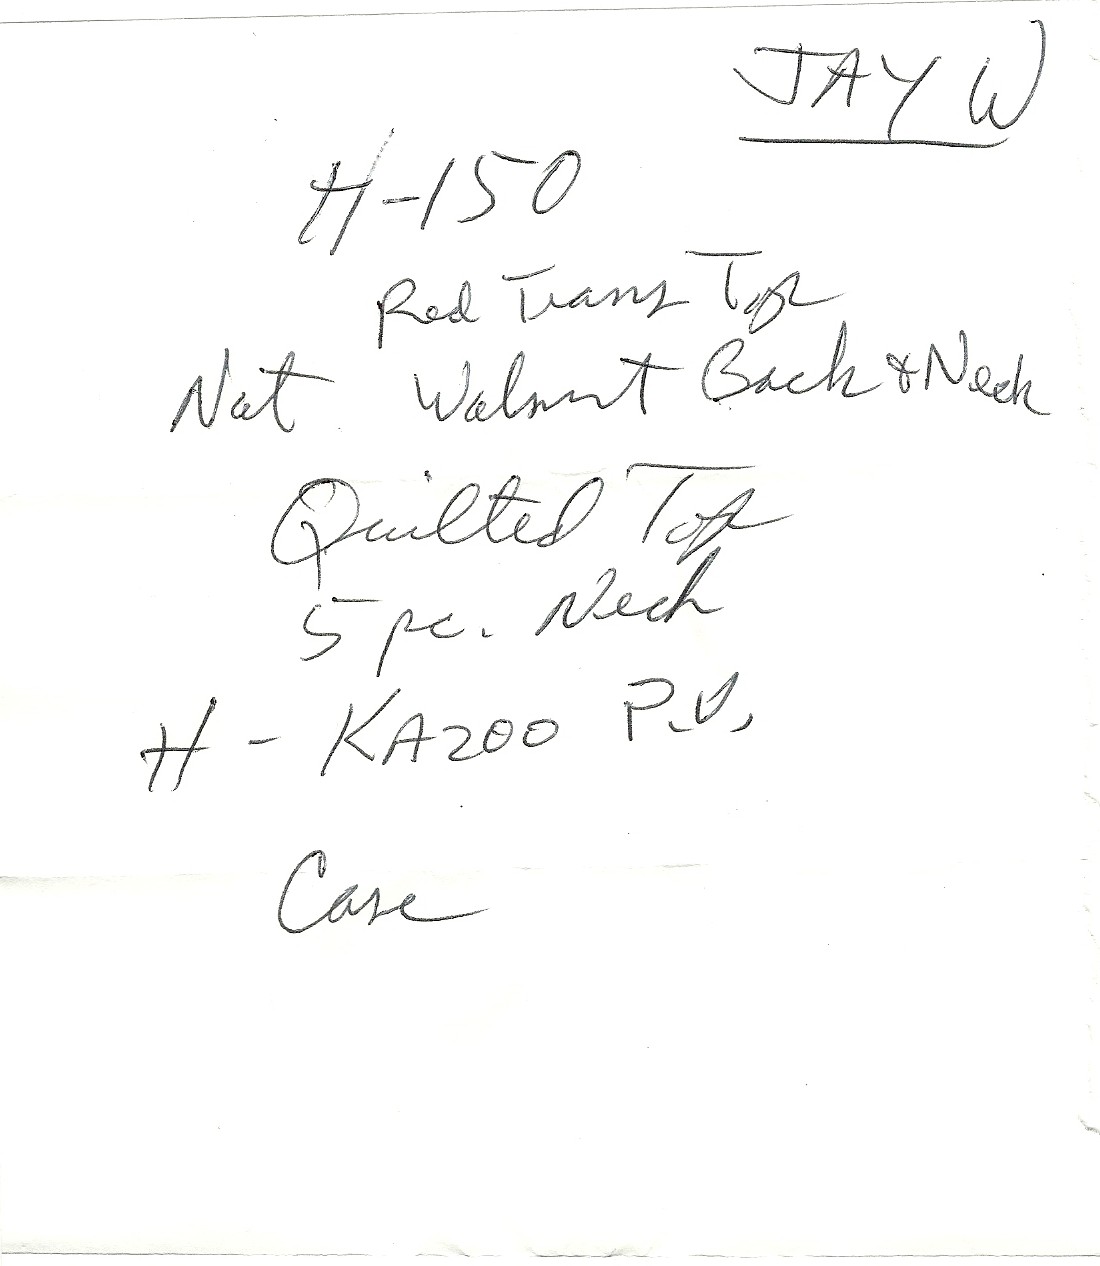 JAY W
H-150
Red Trans Top
Nat Walnut Back & Neck
Quilted Top
5 pc. Neck
H - KAZOO P.U.
Case